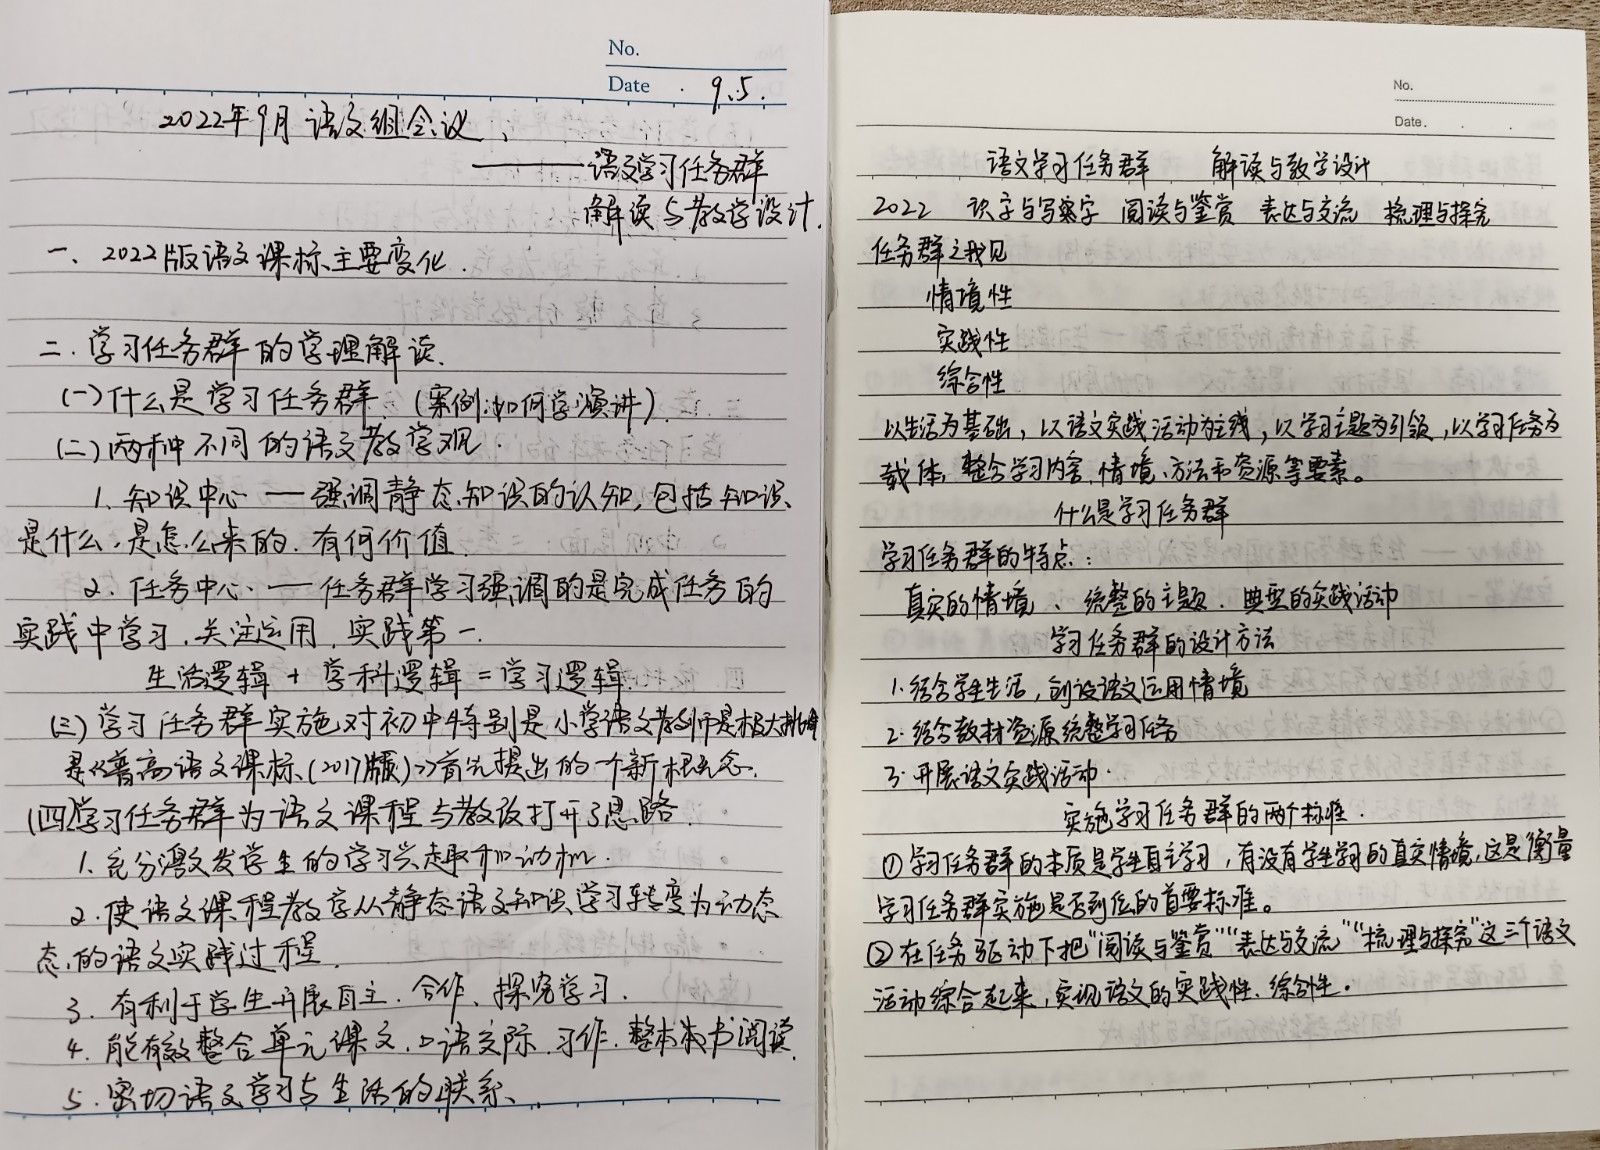 No.
Date . 9.5.
2022年9月语文组会议
——语文学习任务群
解读与教学设计.
一、2022版语文课标主要变化.
二.学习任务群的学理解读.
(一)什么是学习任务群 (案例:如何学演讲)
(二)两种不同的语文教学观
1.知识中心 — 强调静态知识的认知,包括知识
是什么.是怎么来的.有何价值.
2.任务中心 — 任务群学习强调的是完成任务的
实践中学习.关注运用.实践第一.
生活逻辑 + 学科逻辑 = 学习逻辑.
(三)学习任务群实施对初中特别是小学语文教师是极大挑战
是《普高语文课标(2017版)》首先提出的一个新概念.
(四)学习任务群为语文课程与教改打开了思路.
1.充分激发学生的学习兴趣和动机.
2.使语文课程教学从静态语文知识学习转变为动态
态的语文实践过程.
3.有利于学生开展自主.合作、探究学习.
4.能有效整合单元课文.口语交际.习作.整本书阅读.
5.密切语文学习与生活的联系.
No.
Date. . .
语文学习任务群 解读与教学设计
2022 识字与写字 阅读与鉴赏 表达与交流 梳理与探究
任务群之我见
情境性
实践性
综合性
以生活为基础,以语文实践活动为主线,以学习主题为引领,以学习任务为
载体,整合学习内容、情境、方法和资源等要素。
什么是学习任务群
学习任务群的特点:
真实的情境、统整的主题.典型的实践活动
学习任务群的设计方法
1.结合学生生活,创设语文运用情境
2.结合教材资源统整学习任务
3.开展语文实践活动.
实施学习任务群的两个标准.
①学习任务群的本质是学生自主学习,有没有学生学习的真实情境,这是衡量
学习任务群实施是否到位的首要标准。
②在任务驱动下把"阅读与鉴赏""表达与交流""梳理与探究"这三个语文
活动综合起来,实现语文的实践性、综合性。